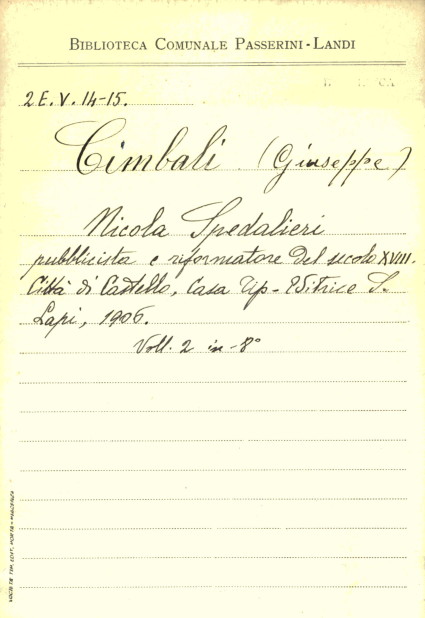 BIBLIOTECA COMUNALE PASSERINI-LANDI
2 E. V. 14-15.
Cimbali (Giuseppe)
Nicola Spedalieri
pubblicista e riformatore del secolo XVIII.
Città di Castello, Casa Tip-Editrice S.
Lapi, 1906.
Voll. 2 in-8°